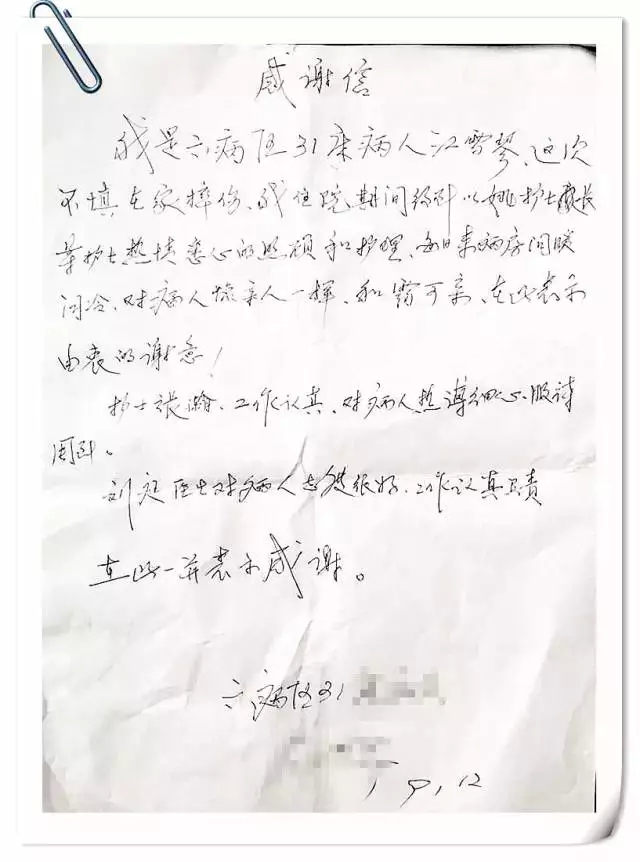 感谢信
我是六病区31床病人江雪琴、这次
不填在家摔伤、我住院期间得到以姚护士长
等护士热情悉心的照顾和护理、每日来病房问暖
问冷、对病人像亲人一样、和蔼可亲、在此表示
由衷的谢意！
护士张瀚、工作认真、对病人热情细心、服务
周到。
刘 医生对病人态度很好、工作认真负责
在此一并表示感谢。
六病区31
9,12